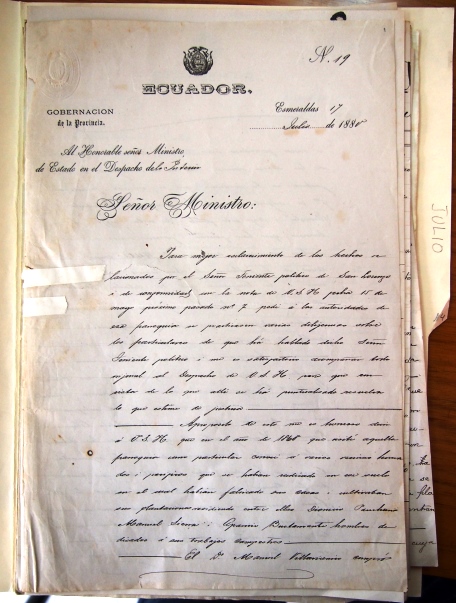 N. 19
ECUADOR.
GOBERNACION
de la Provincia.
Esmeraldas 17
Julio de 188
Al Honorable señor Ministro
de Estado en el Despacho de lo Interior
Señor Ministro:
Para mejor esclarecimiento de los hechos re
lacionados por el Señor Teniente politico de San Lorenzo
i de conformidad en la nota de U. S. H. fecha 15 de
mayo próximo pasado nº 7 pedí á las autoridades de
esa parroquia se practicaran varias diligencias sobre
los particulares de que há hablado dicho Señor
Teniente politico i me es satisfactorio acompañar todo
original al Despacho de U. S. H. para que en
vista de lo que alli se há puntualizado resuelva
lo que estime de justicia
Aproposito de esto me es honroso decir
á U. S. H. que en el año de 1868 que visité aquella
parroquia como particular conocí á varios vecinos honra
dos i pacíficos que se habian radicado en ese suelo
en el cual habian fabricado sus casas i cultivaban
sus plantaciones residiendo entre ellos
Manuel i Bustamante hombres de
dicados á sus trabajos campestres
El D. Manuel Villavicencio
JULIO